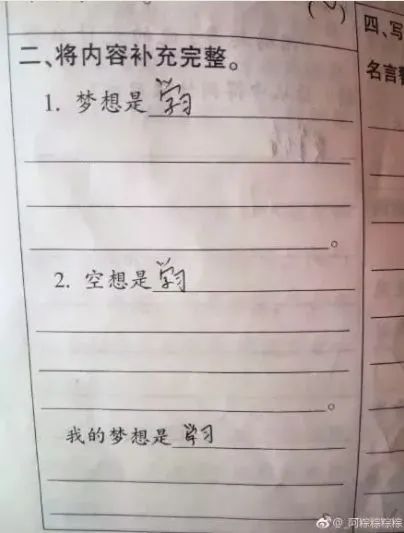 四、写
名言警
二、将内容补充完整。
1. 梦想是学习
。
2. 空想是学习
。
我的梦想是 学习
。
@_阿粽粽粽粽